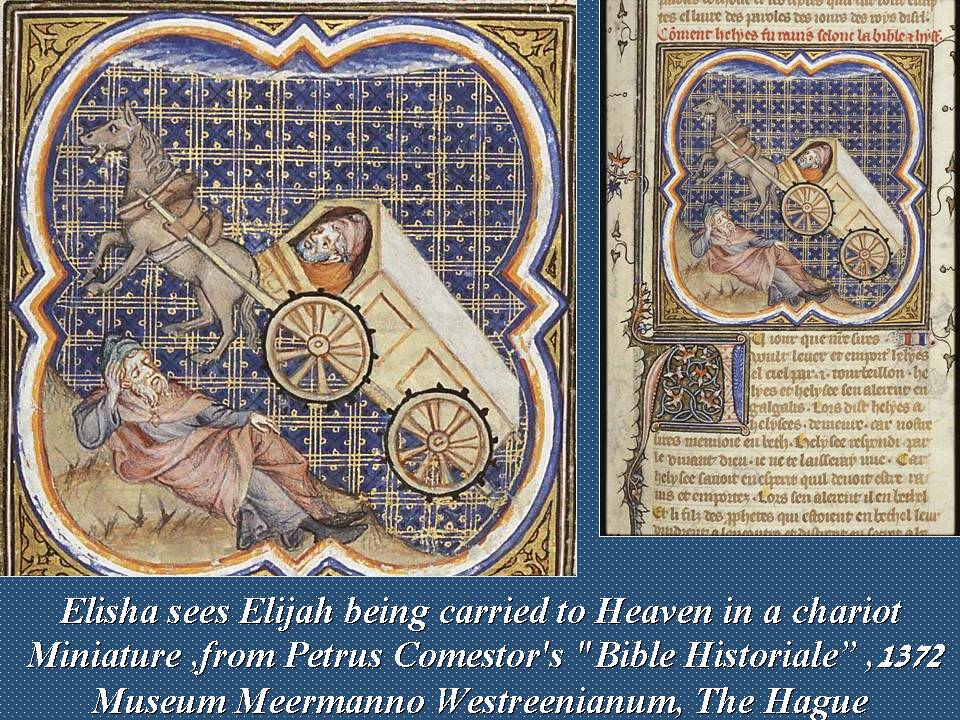 tes et liure des paroles des iours des roys disil.
Cōment helyes fu rauis selonc la bible et hyst.
iour que nre sires
voult leuer et emport helyes
el ciel par .i. tourbeillon . he
lyes et helysee sen alerent en
galgalis . Lors dist helyes a
helysee . demeure . car nostre
sires menuoie en beth . helysee respondi par
le viuant dieu . ie ne te laisseray mie . Car
helysee sauoit en esperit quil deuoit estre ra
uis et emportes . Lors sen alerent il en bethel
Et li filz des prophetes qui estoient en bethel leur
Elisha sees Elijah being carried to Heaven in a chariot
Miniature ,from Petrus Comestor's "Bible Historiale” ,1372
Museum Meermanno Westreenianum, The Hague